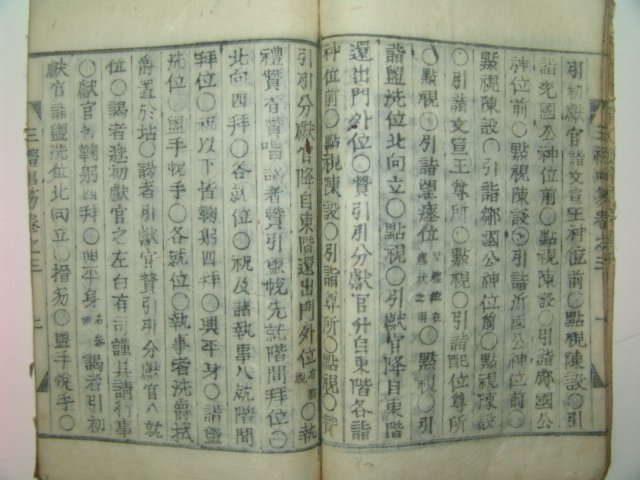 引初獻官詣文宣王神位前○點視陳設○引
詣兗國公神位前○點視陳設○引詣郕國公
神位前○點視陳設○引詣沂國公神位前○
點視陳設○引詣鄒國公神位前○點視陳設
○引詣文宣王尊所○點視○引詣配位尊所
○點視○引詣盥瘞位○點視○引
詣盥洗位北向立○點視○引獻官降自東階
還出門外位○贊引引分獻官升自東階各詣
神位前○點視陳設○引詣尊所○點視○贊
引引分獻官降自東階還出門外位○執
禮贊者贊唱謁者贊引盥帨先就階間拜位○
北向四拜○各就位○祝及諸執事入就階間
拜位○祝以下皆鞠躬四拜○興平身○詣盥
洗位○盥手帨手○各就位○執事者洗爵拭
爵置於坫○謁者引獻官贊引引分獻官入就
位○謁者進初獻官之左白有司謹具請行事
○獻官皆鞠躬四拜○興平身謁者引初
獻官詣盥洗位北向立○搢笏○盥手帨手○
三禮唱笏卷之三